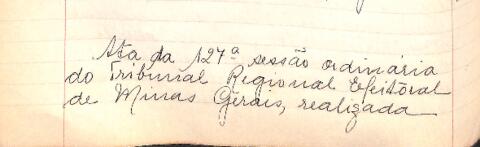 Ata da 127ª sessão ordinária
do Tribunal Regional Eleitoral
de Minas Gerais, realizada